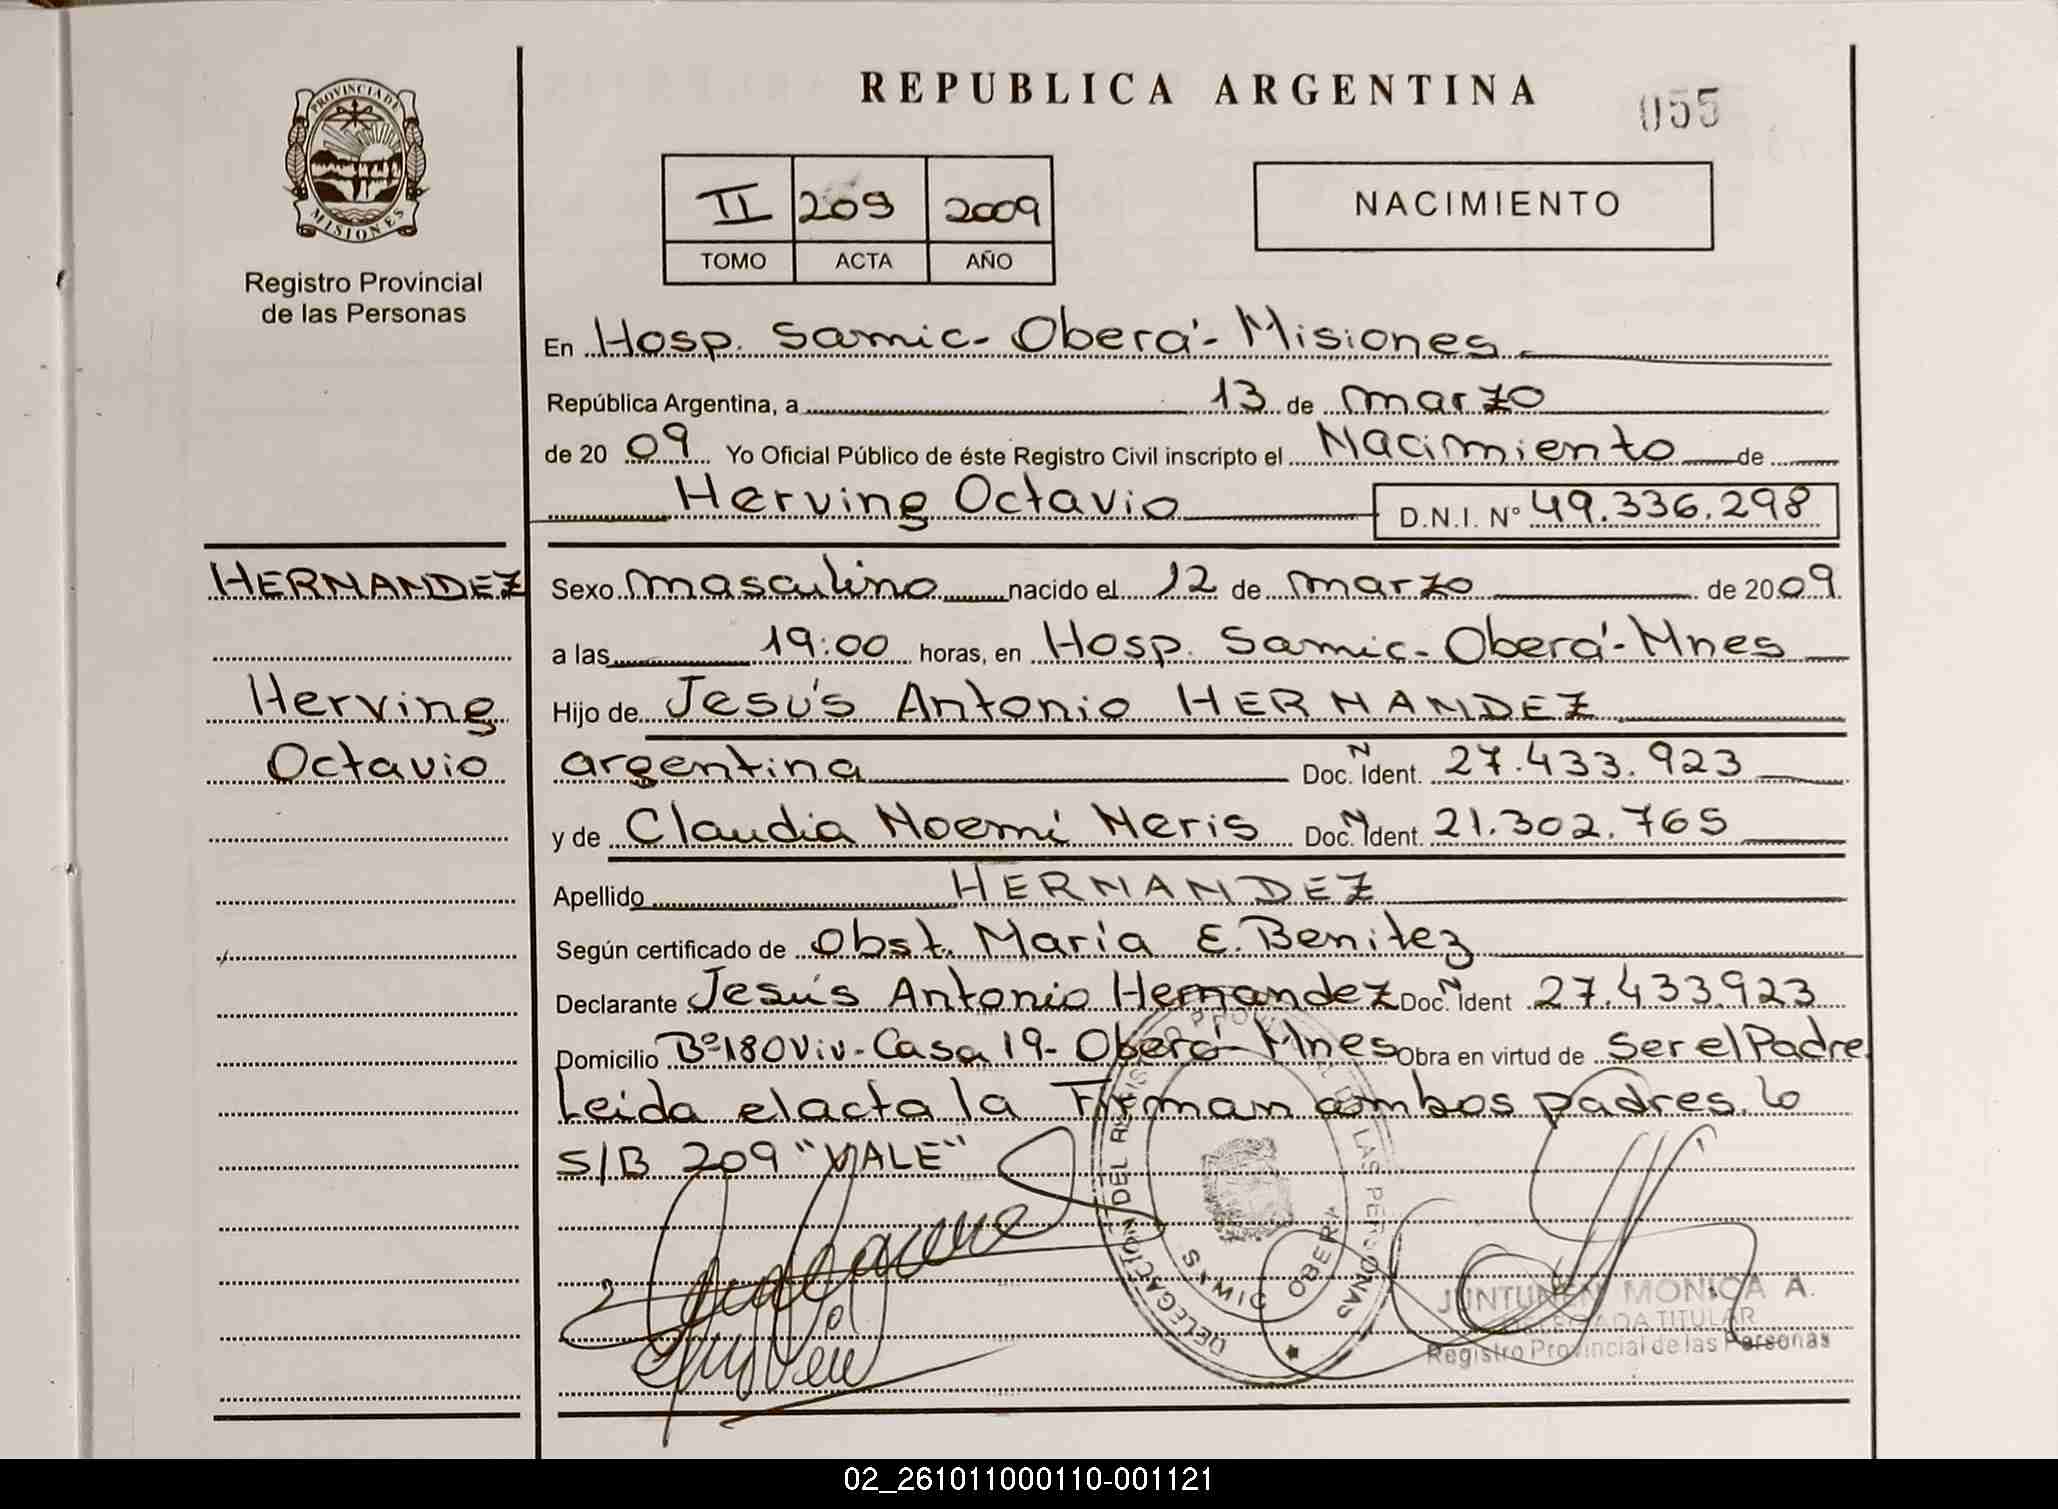 REPUBLICA ARGENTINA
055
PROVINCIA DE
MISIONES
Registro Provincial
de las Personas
II 209 2009
TOMO ACTA AÑO
NACIMIENTO
En Hosp. Samic- Oberá- Misiones
República Argentina, a 13 de marzo
de 20 09 Yo Oficial Público de éste Registro Civil inscripto el Nacimiento de
Herving Octavio D.N.I. N° 49.336.298
HERNANDEZ
Herving
Octavio
Sexo masculino nacido el 12 de marzo de 2009
a las 19:00 horas, en Hosp. Samic- Oberá- Mnes
Hijo de Jesús Antonio HERNANDEZ
argentina Doc. N Ident. 27.433.923
y de Claudia Noemí Neris Doc. N Ident. 21.302.765
Apellido HERNANDEZ
Según certificado de Obst. María E. Benitez
Declarante Jesús Antonio Hernandez Doc. N Ident 27.433923
Domicilio B° 180 Viv- Casa 19- Oberá- Mnes Obra en virtud de Ser el Padre
Leida el acta la Firman ambos padres. lo
S/B 209 "VALE"
DELEGACION DEL REGISTRO PROVINCIAL DE LAS PERSONAS
OBERA
JUNTUNEN MONICA A.
DELEGADA TITULAR
Registro Provincial de las Personas
02_261011000110-001121